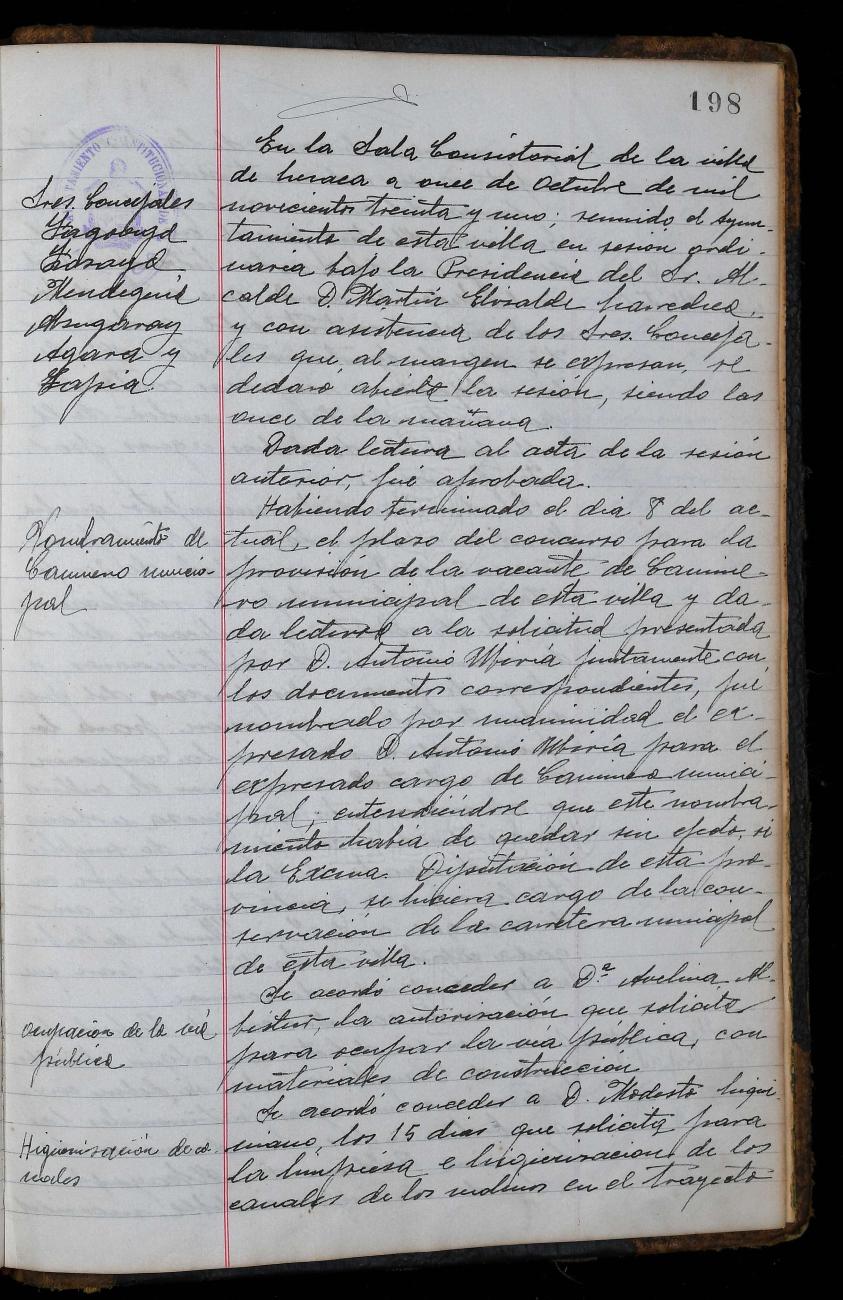 198
AYUNTAMIENTO CONSTITUCIONAL DE
En la Sala Consistorial de la villa
de Lesaca a once de Octubre de mil
novecientos treinta y uno; reunido el Ayun-
tamiento de esta villa en sesión ordi-
naria bajo la Presidencia del Sr. Al-
calde D. Martín Elisalde
y con asistencia de los Sres. Conceja-
les que al margen se expresan, se
declaró abierta la sesión, siendo las
once de la mañana.
Sres. Concejales
Mendeguia
Agara y
Tapia
Dada lectura al acta de la sesión
anterior, fué aprobada.
Nombramiento de
Caminero munici-
pal
Habiendo terminado el dia 8 del ac-
tual, el plazo del concurso para la
provision de la vacante de Camine-
ro municipal de esta villa y da-
da lectura a la solicitud presentada
por D. Antonio Ubiría juntamente con
los documentos correspondientes, fué
nombrado por unanimidad el ex-
presado D. Antonio Ubiría para el
expresado cargo de Caminero munici-
pal; entendiéndose que este nombra-
miento habia de quedar sin efecto, si
la Excma. Diputación de esta pro-
vincia, se hiciera cargo de la con-
servación de la carretera municipal
de esta villa.
Ocupación de la vía
pública
Se acordó conceder a Dª Avelina Al-
bistur, la autorización que solicita
para ocupar la via pública, con
materiales de construcción
Higienización de ca-
nales
Se acordó conceder a D. Modesto
los 15 dias que solicita para
la limpiesa e higienizacion de los
canales de los molinos en el trayecto